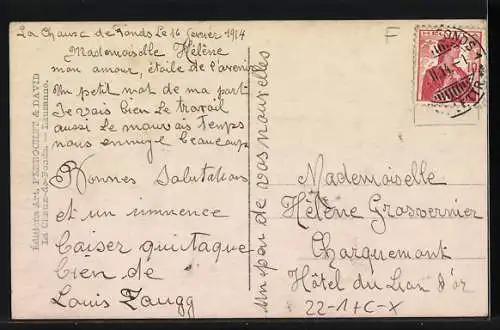 La Chaux de Fonds Le 16 Février 1914
Mademoiselle Hélène
mon amour, étoile de l'avenir
Un petit mot de ma part
Je vais bien Le travail
aussi Le mauvais Temps
nous ennuye beaucoup
Bonnes Salutations
et un immence
Baiser qui
bien de
Louis Zaugg
un peu de vos nouvelles
Editions Art. PERROCHET & DAVID
La Chaux-de-Fonds — Lausanne.
F
HELVETIA
Mademoiselle
Hélène Grosvernier
Charquemont
Hôtel du Lion d'or
22-1+C-X